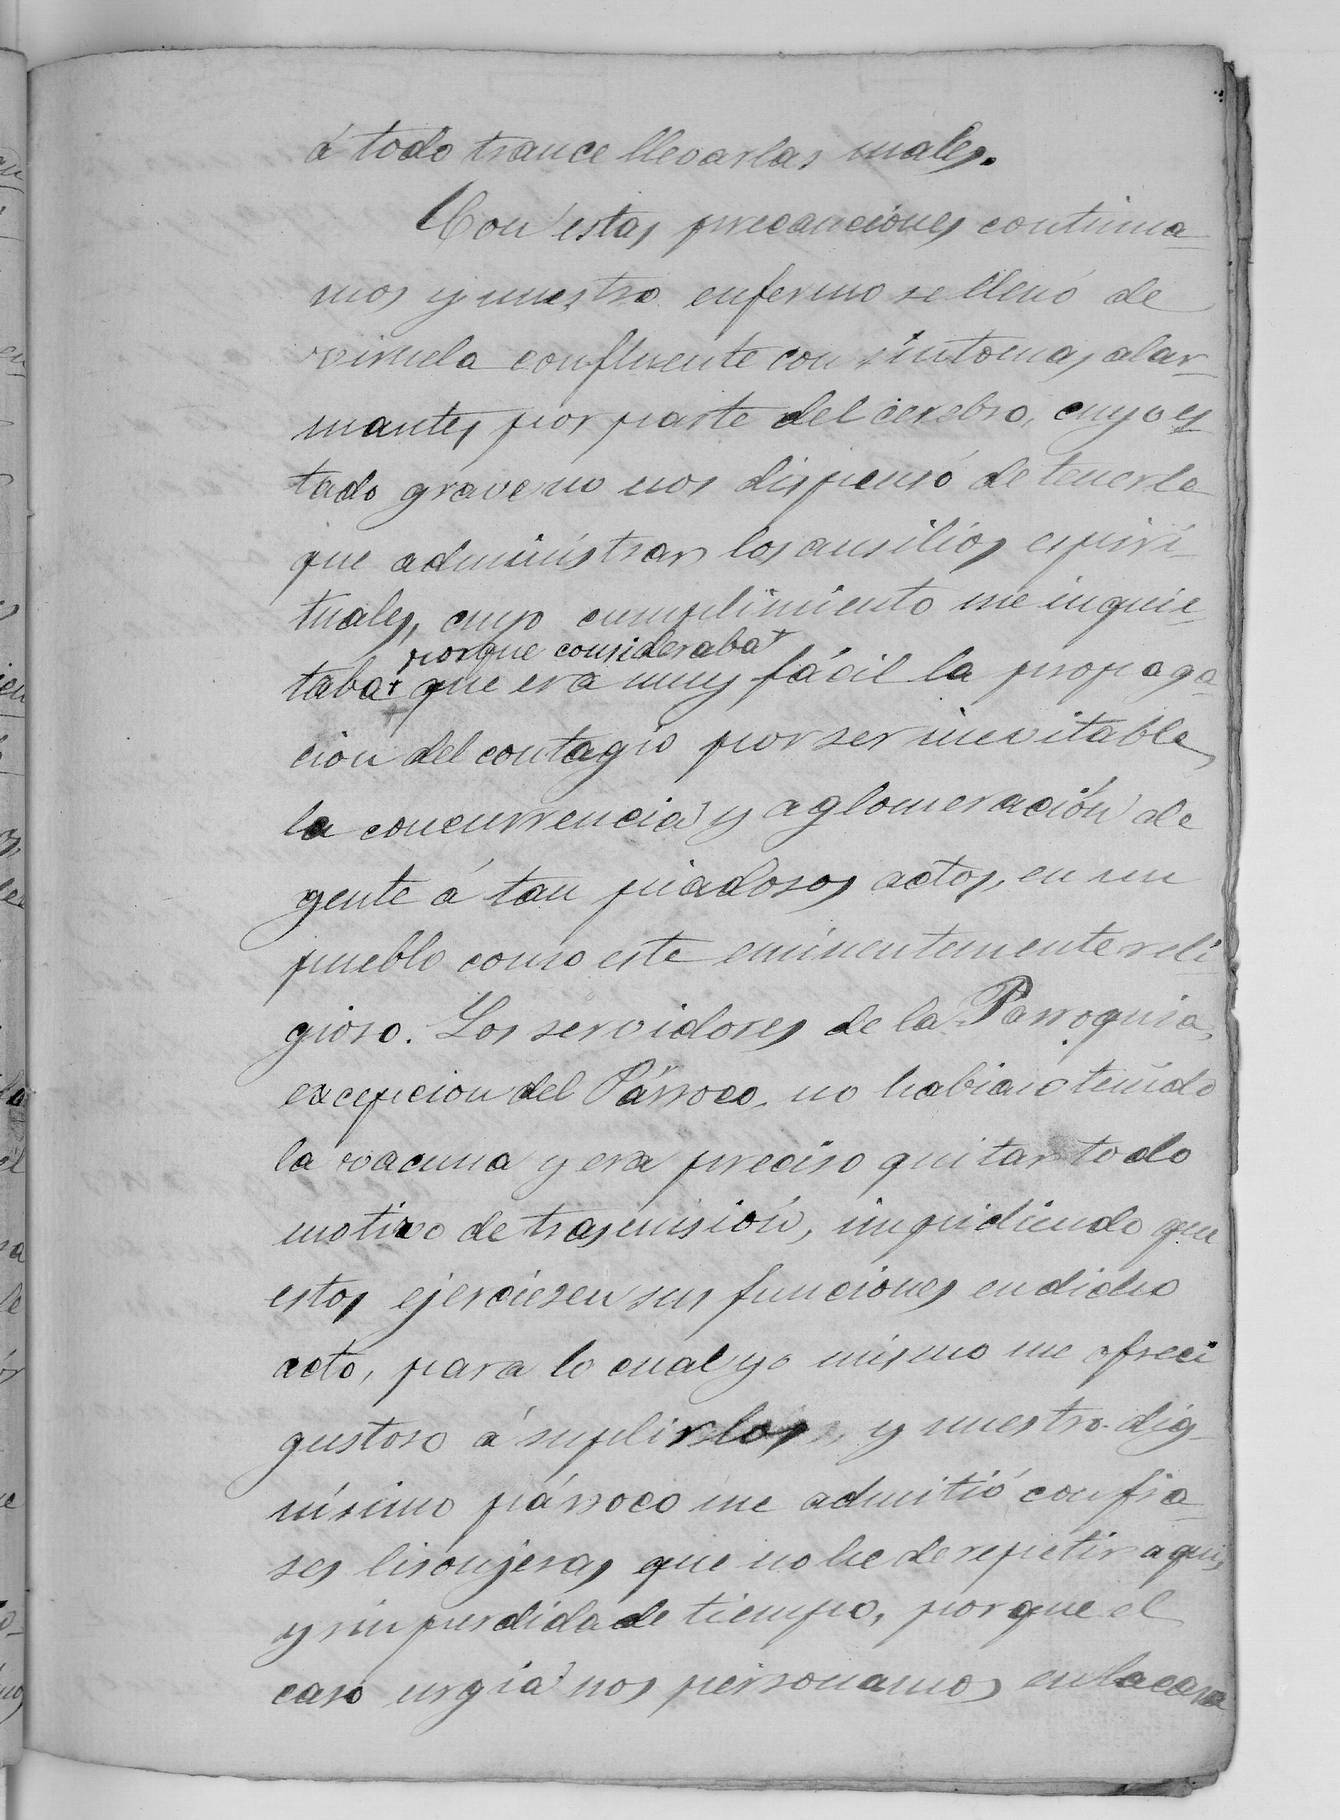 á todo trance llevarlas males.
Con estas precauciones continua-
mos y nuestro enfermo se llenó de
viruela confluente con síntomas alar-
mantes por parte del cerebro, cuyo es-
tado grave no nos dispensó de tenerle
que administrar los ausilios espiri-
tuales, cuyo cumplimiento me inquie-
porque consideraba+
taba+ que era muy fácil la propaga-
cion del contagio por ser inevitable
la concurrencia y aglomeración de
gente á tan piadosos actos, en un
pueblo como este eminentemente reli-
gioso. Los servidores de la Parroquia,
excepcion del Párroco, no habian tenido
la vacuna y era preciso quitar todo
motivo de trasmisión, impidiendo que
estos ejerciesen sus funciones en dicho
acto, para lo cual yo mismo me ofreci
gustoso á suplirlos, y nuestro dig-
nísimo párroco me admitió con fra-
ses lisonjeras que no he de repetir aqui,
y sin perdida de tiempo, porque el
caso urgía nos personamos en la casa